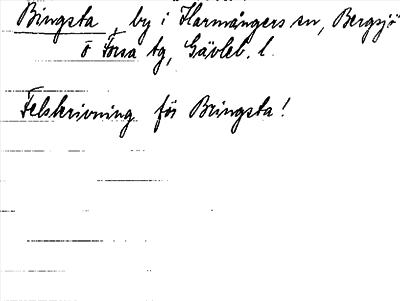 Bingsta, by i Harmångers sn, Bergsjö
o Forsa tg, Gävleb. l.
Felskrivning för Bringsta!